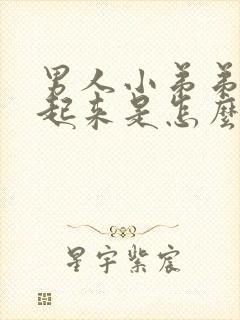 男人小弟弟
起来是怎麽
星宇紫宸